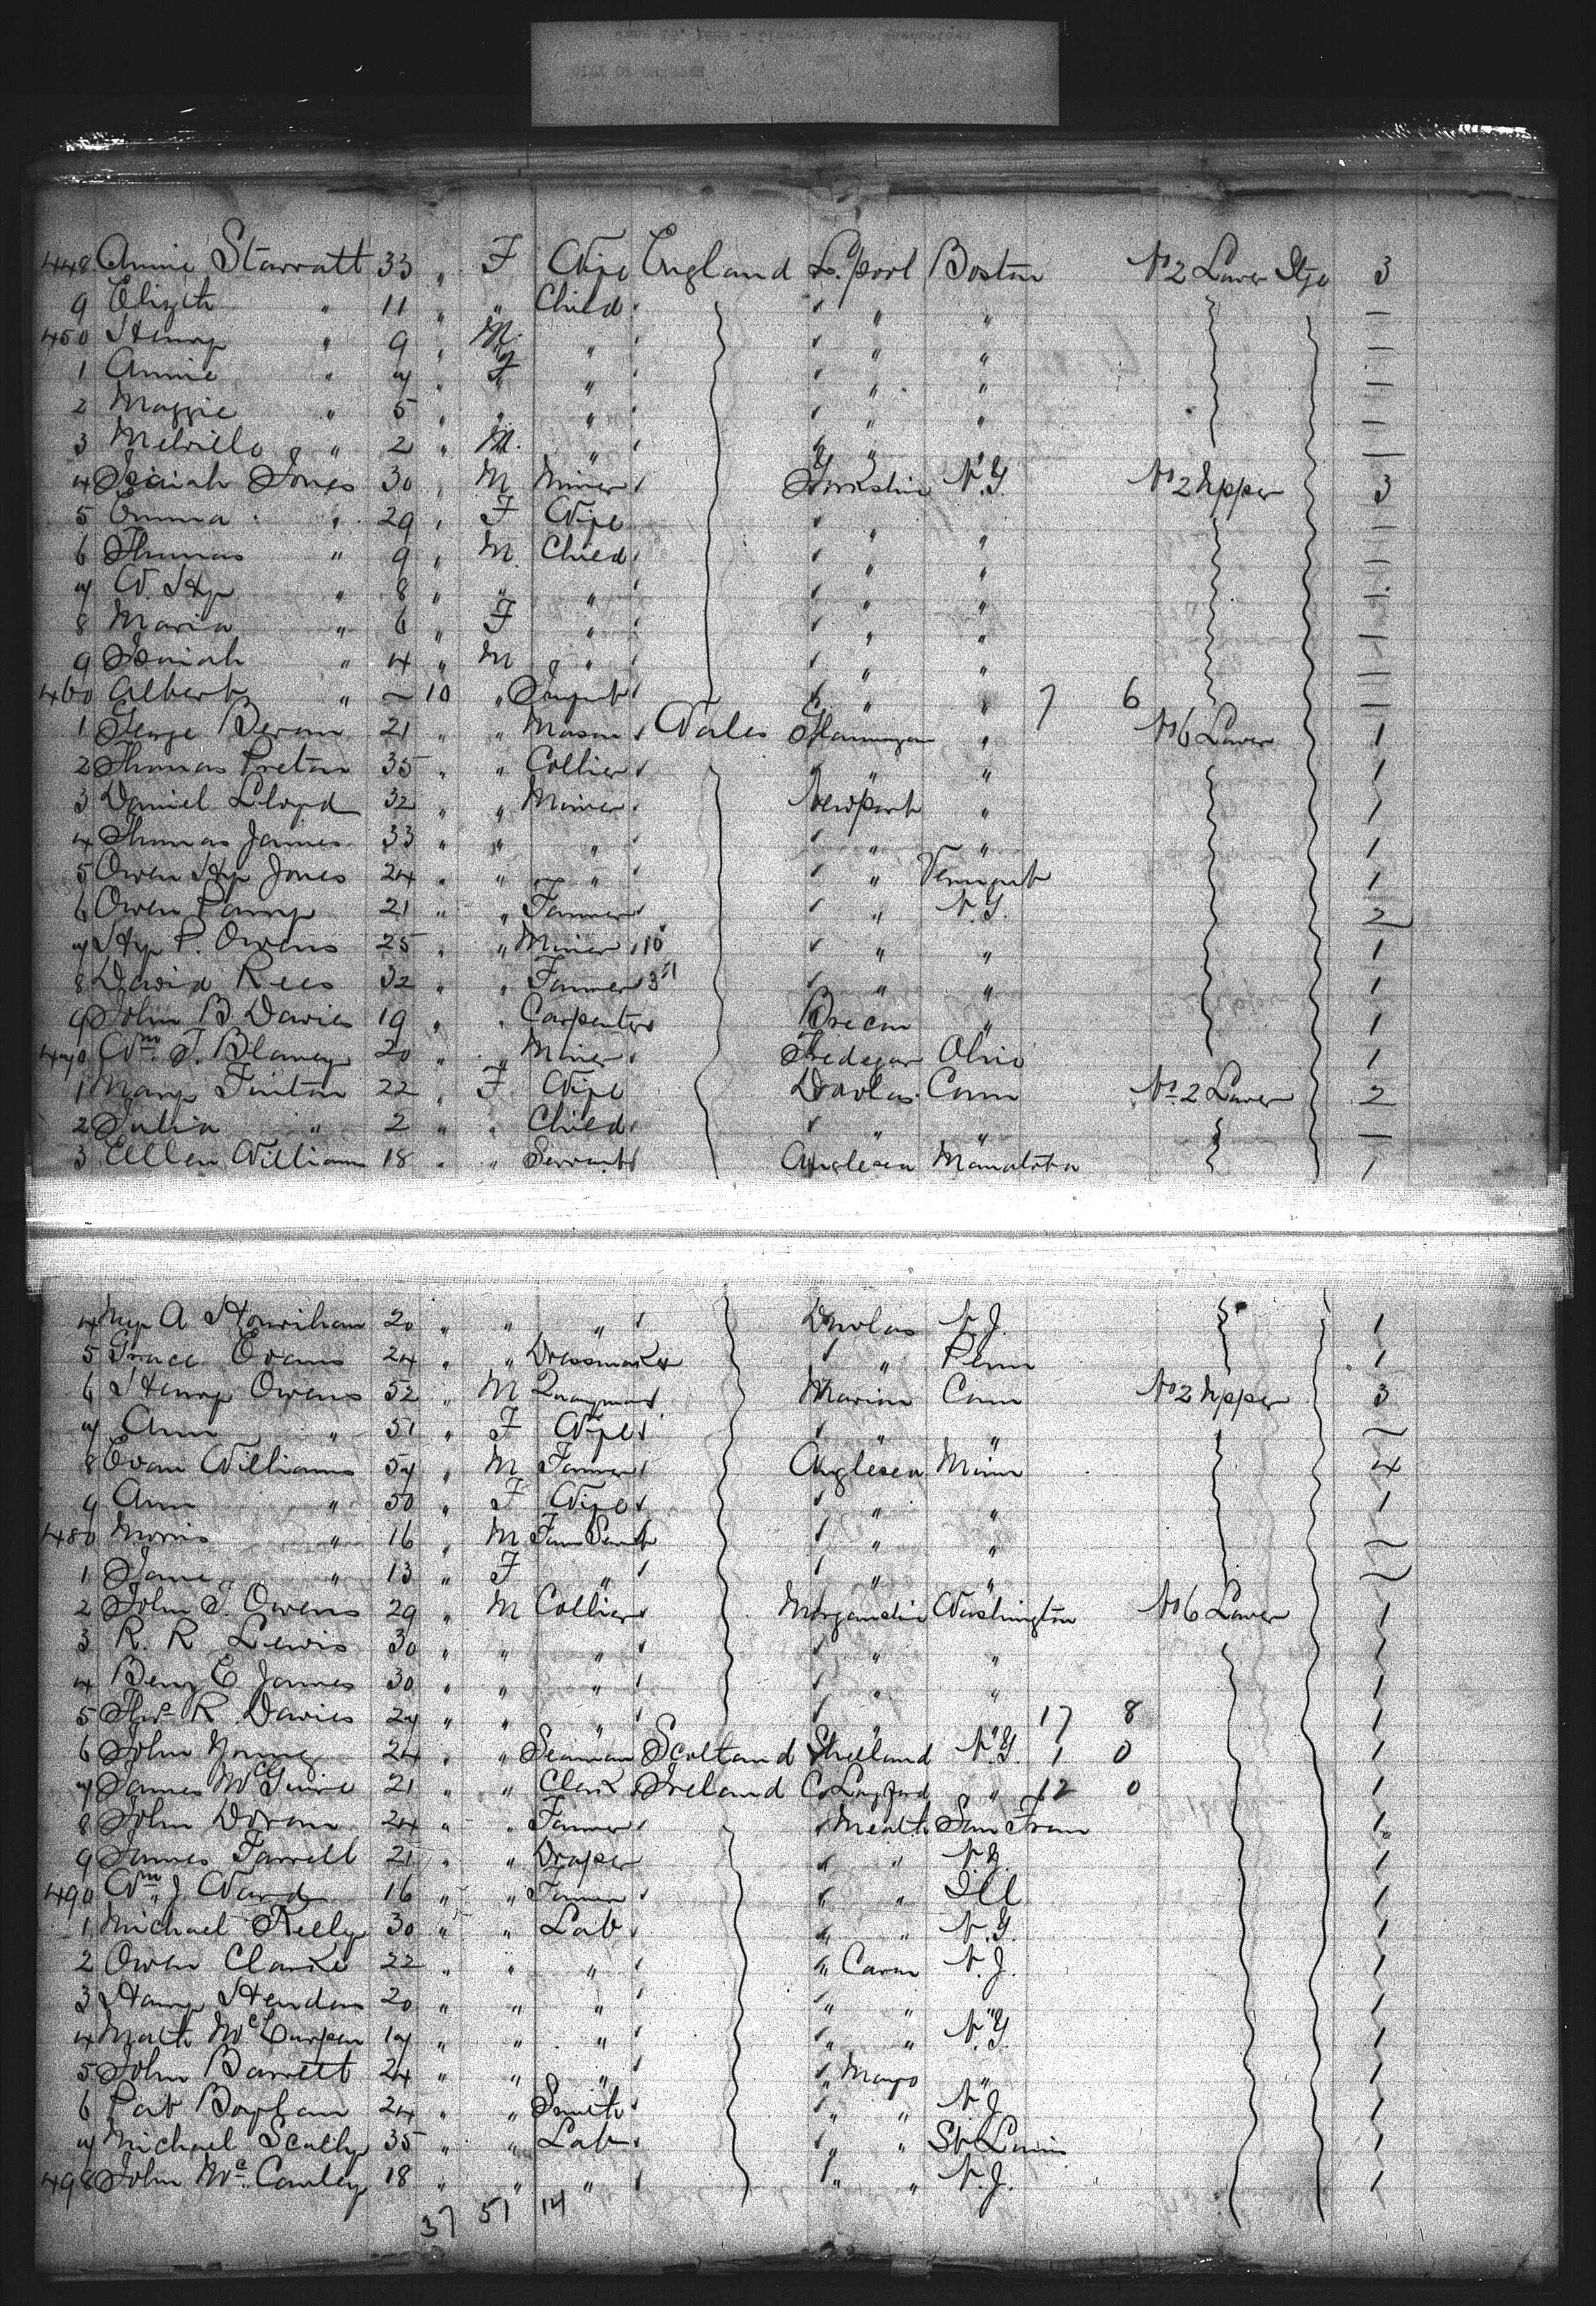 448 Annie Starratt 33 " F Wife England L.pool Boston No 2 Lower Stge 3
9 Elizth " 11 " " Child " " —
450 Henry " 9 " M " " " —
1 Annie " 7 " F " " " —
2 Maggie " 5 " " " " " —
3 Melville " 2 " M. " " " —
4 Isaiah Jones 30 " M Miner Yorkshire N.Y. No 2 Upper 3
5 Emma " 29 " F Wife " " —
6 Thomas " 9 " M. Child " " —
7 W. Hy " 8 " " " " " —
8 Maria " 6 " F " " " —
9 Isaiah " 4 " M " " " —
460 Albert " — 10 " Infant " " 7 6 —
1 George Bevan 21 " " Mason Wales Glamorgan " No 6 Lower 1
2 Thomas Preton 35 " " Collier " " 1
3 Daniel Lloyd 32 " " Miner Newport " 1
4 Thomas James 33 " " " " " 1
5 Owen Hy Jones 24 " " " " Vermont 1
6 Owen Parry 21 " " Farmer " N.Y. 2
7 Hy P. Owens 25 " " Miner 10 " " 1
8 David Rees 32 " " Farmer 351 " " 1
9 John B Davies 19 " " Carpenter Brecon " 1
470 Wm. T. Blamey 20 " " Miner Tredegar Ohio 1
1 Mary Finton 22 " F Wife Dowlas Conn No. 2 Lower 2
2 Julia " 2 " " Child " " —
3 Ellen Williams 18 " " Servant Anglesea Manatoba 1
4 My A Hourihan 20 " " " Dowlas N.J. 1
5 Grace Evans 24 " " Dressmaker " Penn 1
6 Henry Owens 52 " M Quarryman Marion Conn No 2 Upper 3
7 Ann " 51 " F Wife " " —
8 Evan Williams 57 " M Farmer Anglesea Minn 4
9 Ann " 50 " F Wife " " 1
480 Morris " 16 " M Farm Servt " " —
1 Jane " 13 " F " " " —
2 John J. Owens 29 " M Collier Morganshire Washington No 6 Lower 1
3 R. R Lewis 30 " " " " " 1
4 Benj E James 30 " " " " " 1
5 Thos R. Davies 27 " " " " 17 8 1
6 John Young 24 " " Seaman Scotland Shetland N.Y. 1 0 1
7 James McGuire 21 " " Clerk Ireland Co Longford " 12 0 1
8 John Doran 24 " " Farmer " Meath San Fran 1
9 James Farrell 21 " " Draper " " N.Y. 1
490 Wm J. Ward 16 " " Farmer " " Ill 1
1 Michael Kelly 30 " " Lab " " N.Y. 1
2 Owen Clarke 22 " " " " Cavan N.J. 1
3 Harry Hendon 20 " " " " " " 1
4 Matt 17 " " " " " N.Y. 1
5 John Barrett 24 " " " " Mayo " 1
6 Pat Boylan 24 " " Smith " " N.J. 1
7 Michael Scully 35 " " Lab " " St Louis 1
498 John McCawley 18 " " " " " N.J. 1
37 51 14